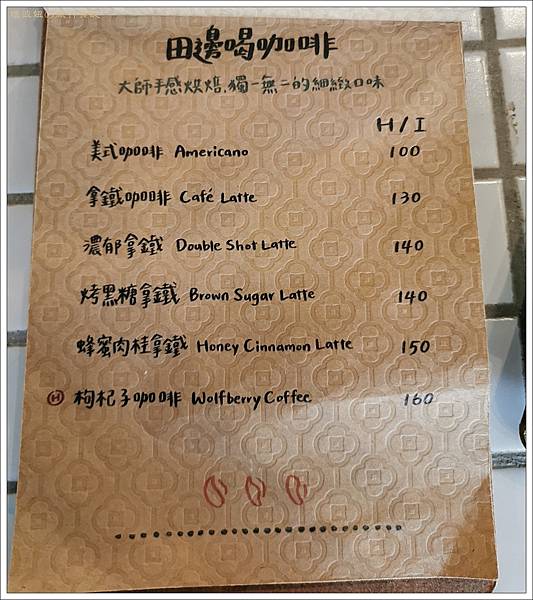 田邊喝咖啡
大師手感烘焙,獨一無二的細緻口味
H / I
美式咖啡 Americano 100
拿鐵咖啡 Café Latte 130
濃郁拿鐵 Double Shot Latte 140
烤黑糖拿鐵 Brown Sugar Latte 140
蜂蜜肉桂拿鐵 Honey Cinnamon Latte 150
Ⓗ 枸杞子咖啡 Wolfberry Coffee 160